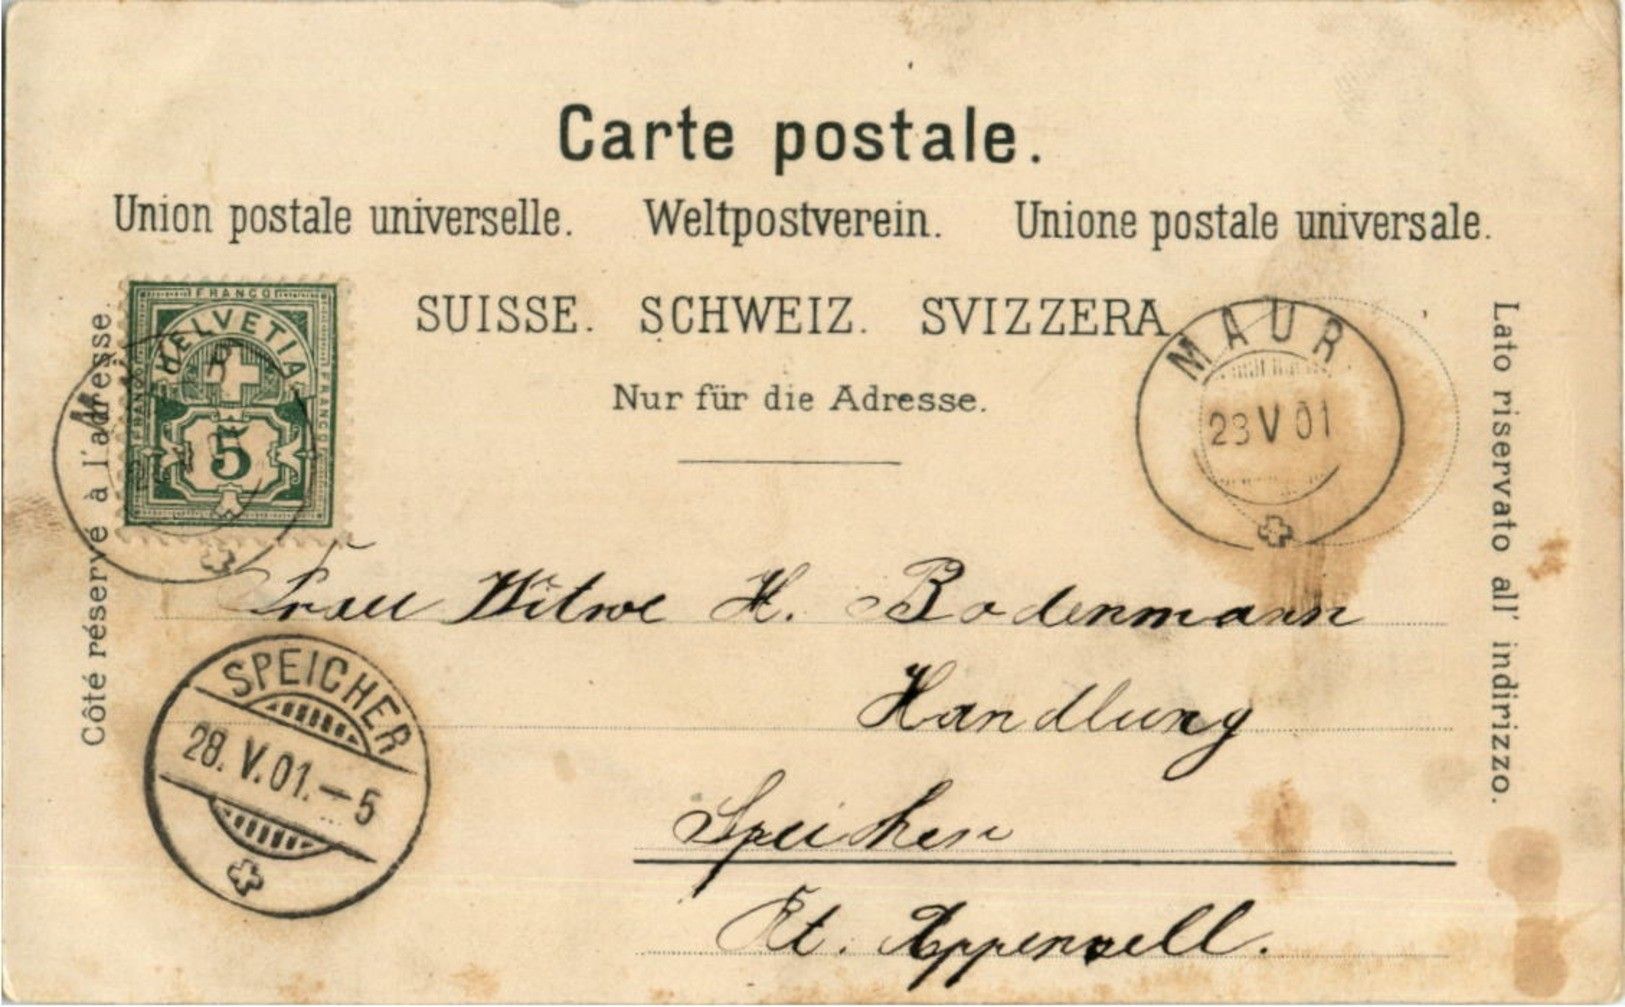 Carte postale.
Union postale universelle. Weltpostverein. Unione postale universale.
SUISSE. SCHWEIZ. SVIZZERA
Nur für die Adresse.
Côté réservé à l'adresse.
FRANCO
FRANCO
FRANCO
HELVETIA
5
MAUR
28 V 01
Lato riservato all' indirizzo.
Frau Witwe H. Bodenmann
Handlung
Speicher
Kt. Appenzell.
SPEICHER
28. V. 01. – 5